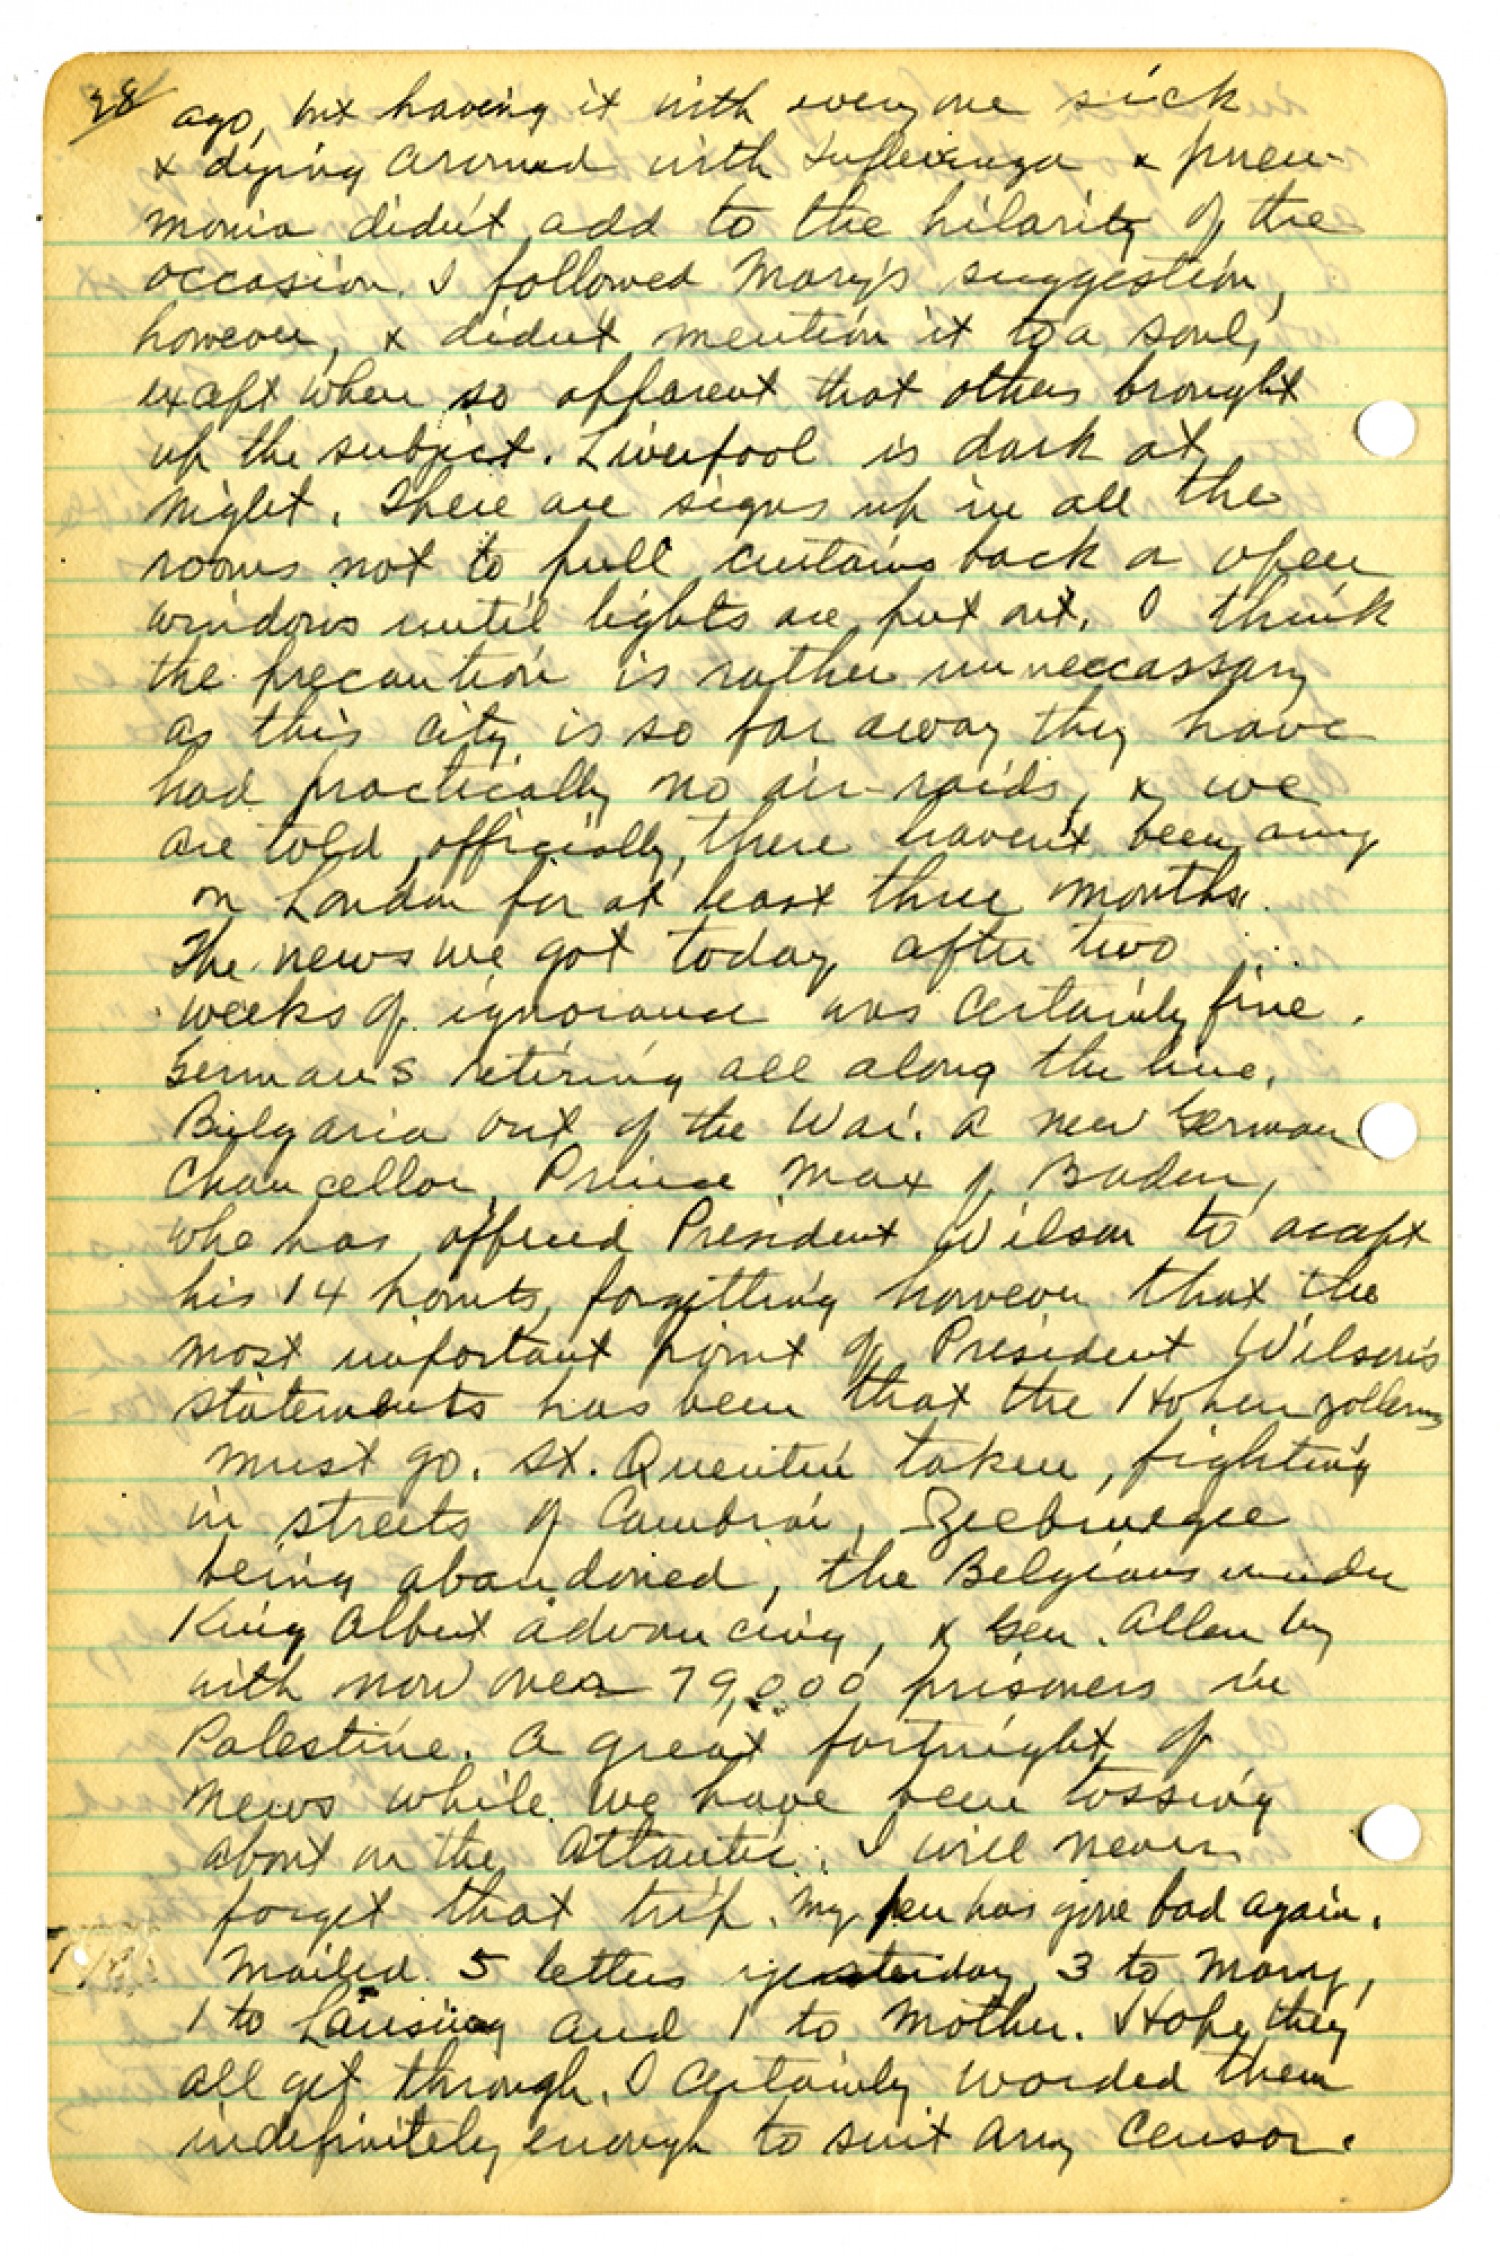 28
ago, but having it with everyone sick
& dying around with Influenza & pneu-
monia didn't add to the hilarity of the
occasion. I followed Mary's suggestion,
however, & didn't mention it to a soul,
except when so apparent that others brought
up the subject. Liverpool is dark at
night. There are signs up in all the
rooms not to pull curtains back or open
windows until lights are put out. I think
the precaution is rather unneccassary
as this city is so far away they have
had practically no air-raids, & we
are told officially, there haven't been any
on London for at least three months.
The news we got today after two
weeks of ignorance was certainly fine.
Germans retiring all along the line.
Bulgaria out of the War. A new German
Chancellor, Prince Max of Baden,
who has offered President Wilson to accept
his 14 points, forgetting however that the
most important point of President Wilson's
statements has been that the Hohenzollerns
must go. St. Quentin taken, fighting
in streets of Cambrai, Zeebruegge
being abandoned, the Belgians under
King Albert advancing, & Gen. Allenby
with now over 79,000 prisoners in
Palestine. A great fortnight of
news while we have been tossing
about on the Atlantic. I will never
forget that trip. My pen has gone bad again.
Mailed 5 letters yesterday, 3 to Mary,
1 to Lansing and 1 to Mother. Hope they
all get through. I certainly worded them
indefinitely enough to suit any censor.